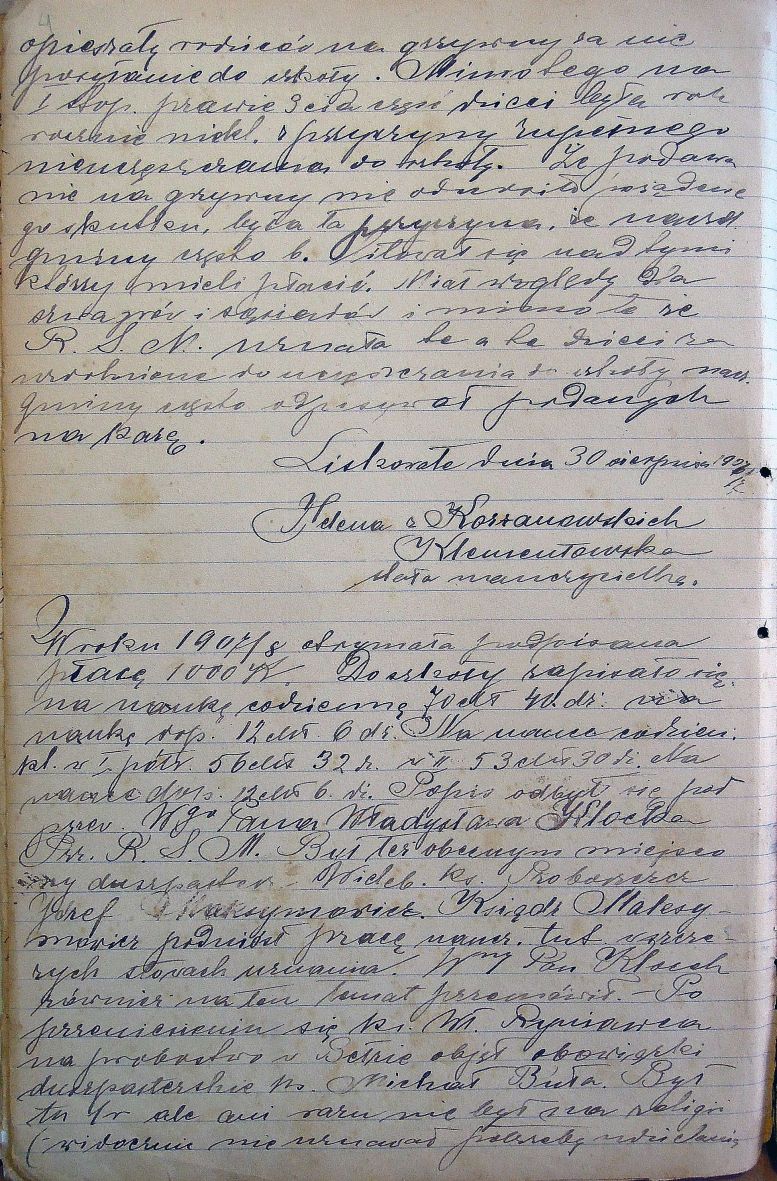 4
opieszałych rodziców na grzywny za nie
posyłanie do szkoły. Mimo tego na
I stop. prawie 3cia część dzieci była rok
rocznie nickl. z przyczyny zupełnego
nieuczęszczania do szkoły. Że podawa
nie na grzywny nie odnosiło pożądane
go skutku, była ta przyczyna, że nacz.
gminy często b. litował się nad tymi
którzy mieli płacić. Miał względy dla
szwagrów i sąsiadów i mimo to że
R. S. M. uznała te a te dzieci za
uzdolnione do uczęszczania do szkoły nacz.
gminy często odpisywał podanych
na karę.
Liskowate dnia 30 sierpnia
Helena z Korzanowskich
Klementowska
stała nauczycielka.
W roku 1907/8 otrzymała podpisana
płacę 1000 K. Do szkoły zapisało się
na naukę codzienną 70 chł 40. dz. na
naukę dop. 12 chł. 6 dz. Na nauce codzien.
kl. w I półr. 56 chł 32 dz. w II 53 chł 30 dz. Na
nauce dop. 12 chł 6. dz. Popis odbył się pod
przew. Wgo Pana Władysława Klocka
Prz. R. S. M. Był też obecnym miejsco
wy duszpasterz Wieleb. ks. Proboszcz
Józef Maksymowicz. Ksiądz Maksy-
mowicz podniósł pracę naucz. tut. w szcze-
rych słowach uznania. Wny Pan Klocek
również na ten temat przemówił. - Po
przeniesieniu się ks. Wł.
na probostwo w objął obowiązki
duszpasterskie ks. Michał Buła. Był
tu 1 r ale ani razu nie był na religii
(widocznie nie uznawał potrzeby udzielania